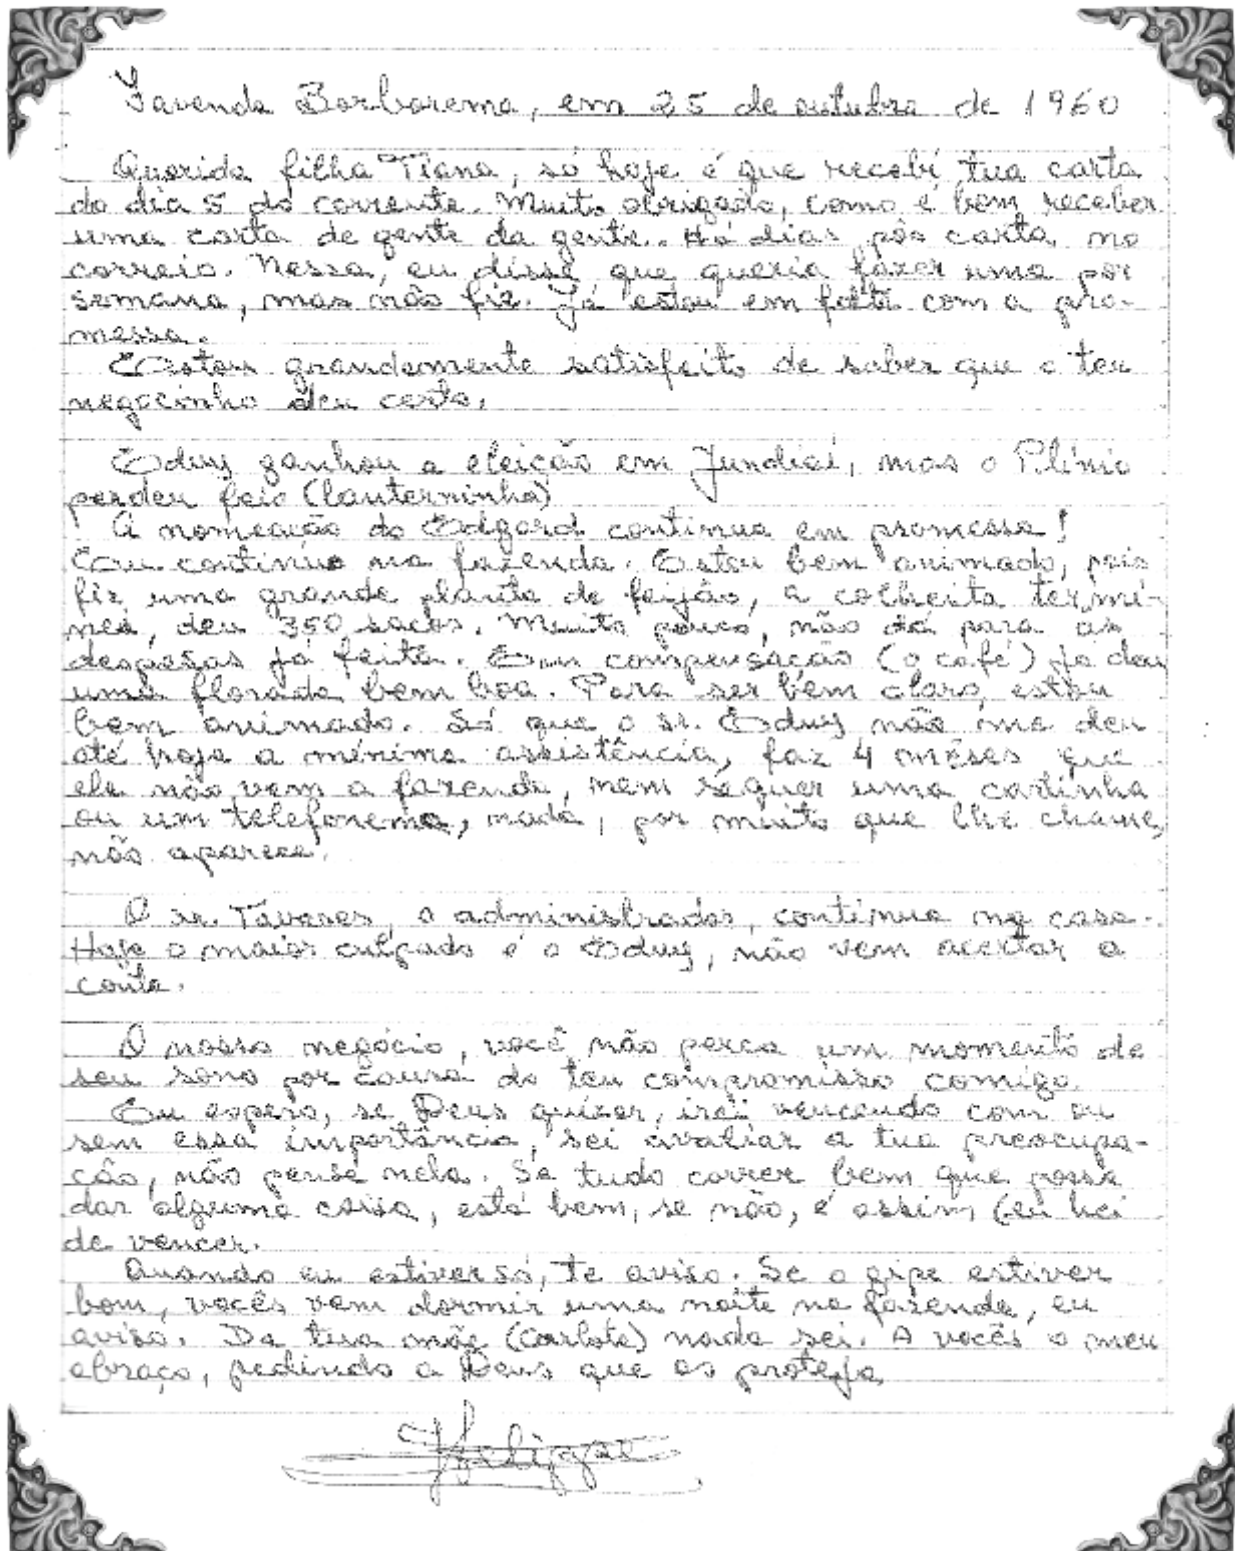 Favenda Borborema, em 25 de outubro de 1960
Querida filha Tiana, só hoje é que recebí tua carta
do dia 5 do corrente. Muito obrigado, como é bom receber
uma carta de gente da gente. Há dias pôs carta no
correio. Nessa, eu disse que queria fazer uma por
semana, mas não fiz. Já estou em falta com a pro-
messa.
Estou grandemente satisfeito de saber que o teu
negocinho deu certo.
Eduy ganhou a eleição em Jundiaí, mas o Plínio
perdeu feio (lanterninha)
A nomeação do Edgard continua em promessa!
Eu continuo na fazenda. Estou bem animado, pois
fiz uma grande planta de feijão, a colheita termi-
nei, deu 350 sacos. Muito pouco, não dá para as
despesas já feita. Em compensação (o café) já deu
uma florada bem boa. Para ser bem claro, estou
bem animado. Só que o sr. Eduy não me deu
até hoje a mínima assistência, faz 4 mêses que
ele não vem a fazenda, nem sequer uma cartinha
ou um telefonema, nada, por muito que lhe chame,
não aparece.
O sr. Tavares, o administrador, continua na casa.
Hoje o maior culpado é o Eduy, não vem acertar a
conta.
O nosso negócio, você não perca um momento de
seu sono por causa do teu compromisso comigo.
Eu espero, se Deus quizer, irei vencendo com ou
sem essa importância, sei avaliar a tua preocupa-
ção, não pense nela. Se tudo correr bem que possa
dar alguma coisa, está bem, se não, é assim (eu hei
de vencer.
Quando eu estiver só, te aviso. Se o gipe estiver
bom, vocês vem dormir uma noite na fazenda, eu
aviso. Da tua mãe (Carlota) nada sei. A vocês o meu
abraço, pedindo a Deus que os proteja,
Felippe